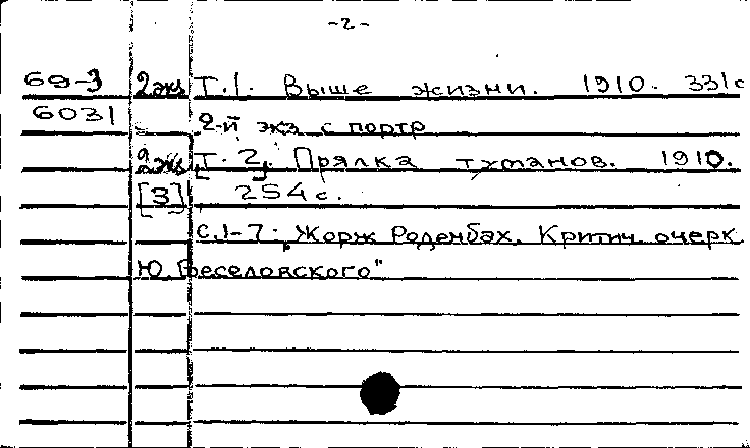 -2-
69-3 2экз Т.1. Выше жизни. 1910. 331с
6031 2-й экз. с портр
2экз Т. 2. Прялка туманов. 1910.
[3] 254с.
с.1-7: „Жорж Роденбах. Критич. очерк
Ю. Веселовского"